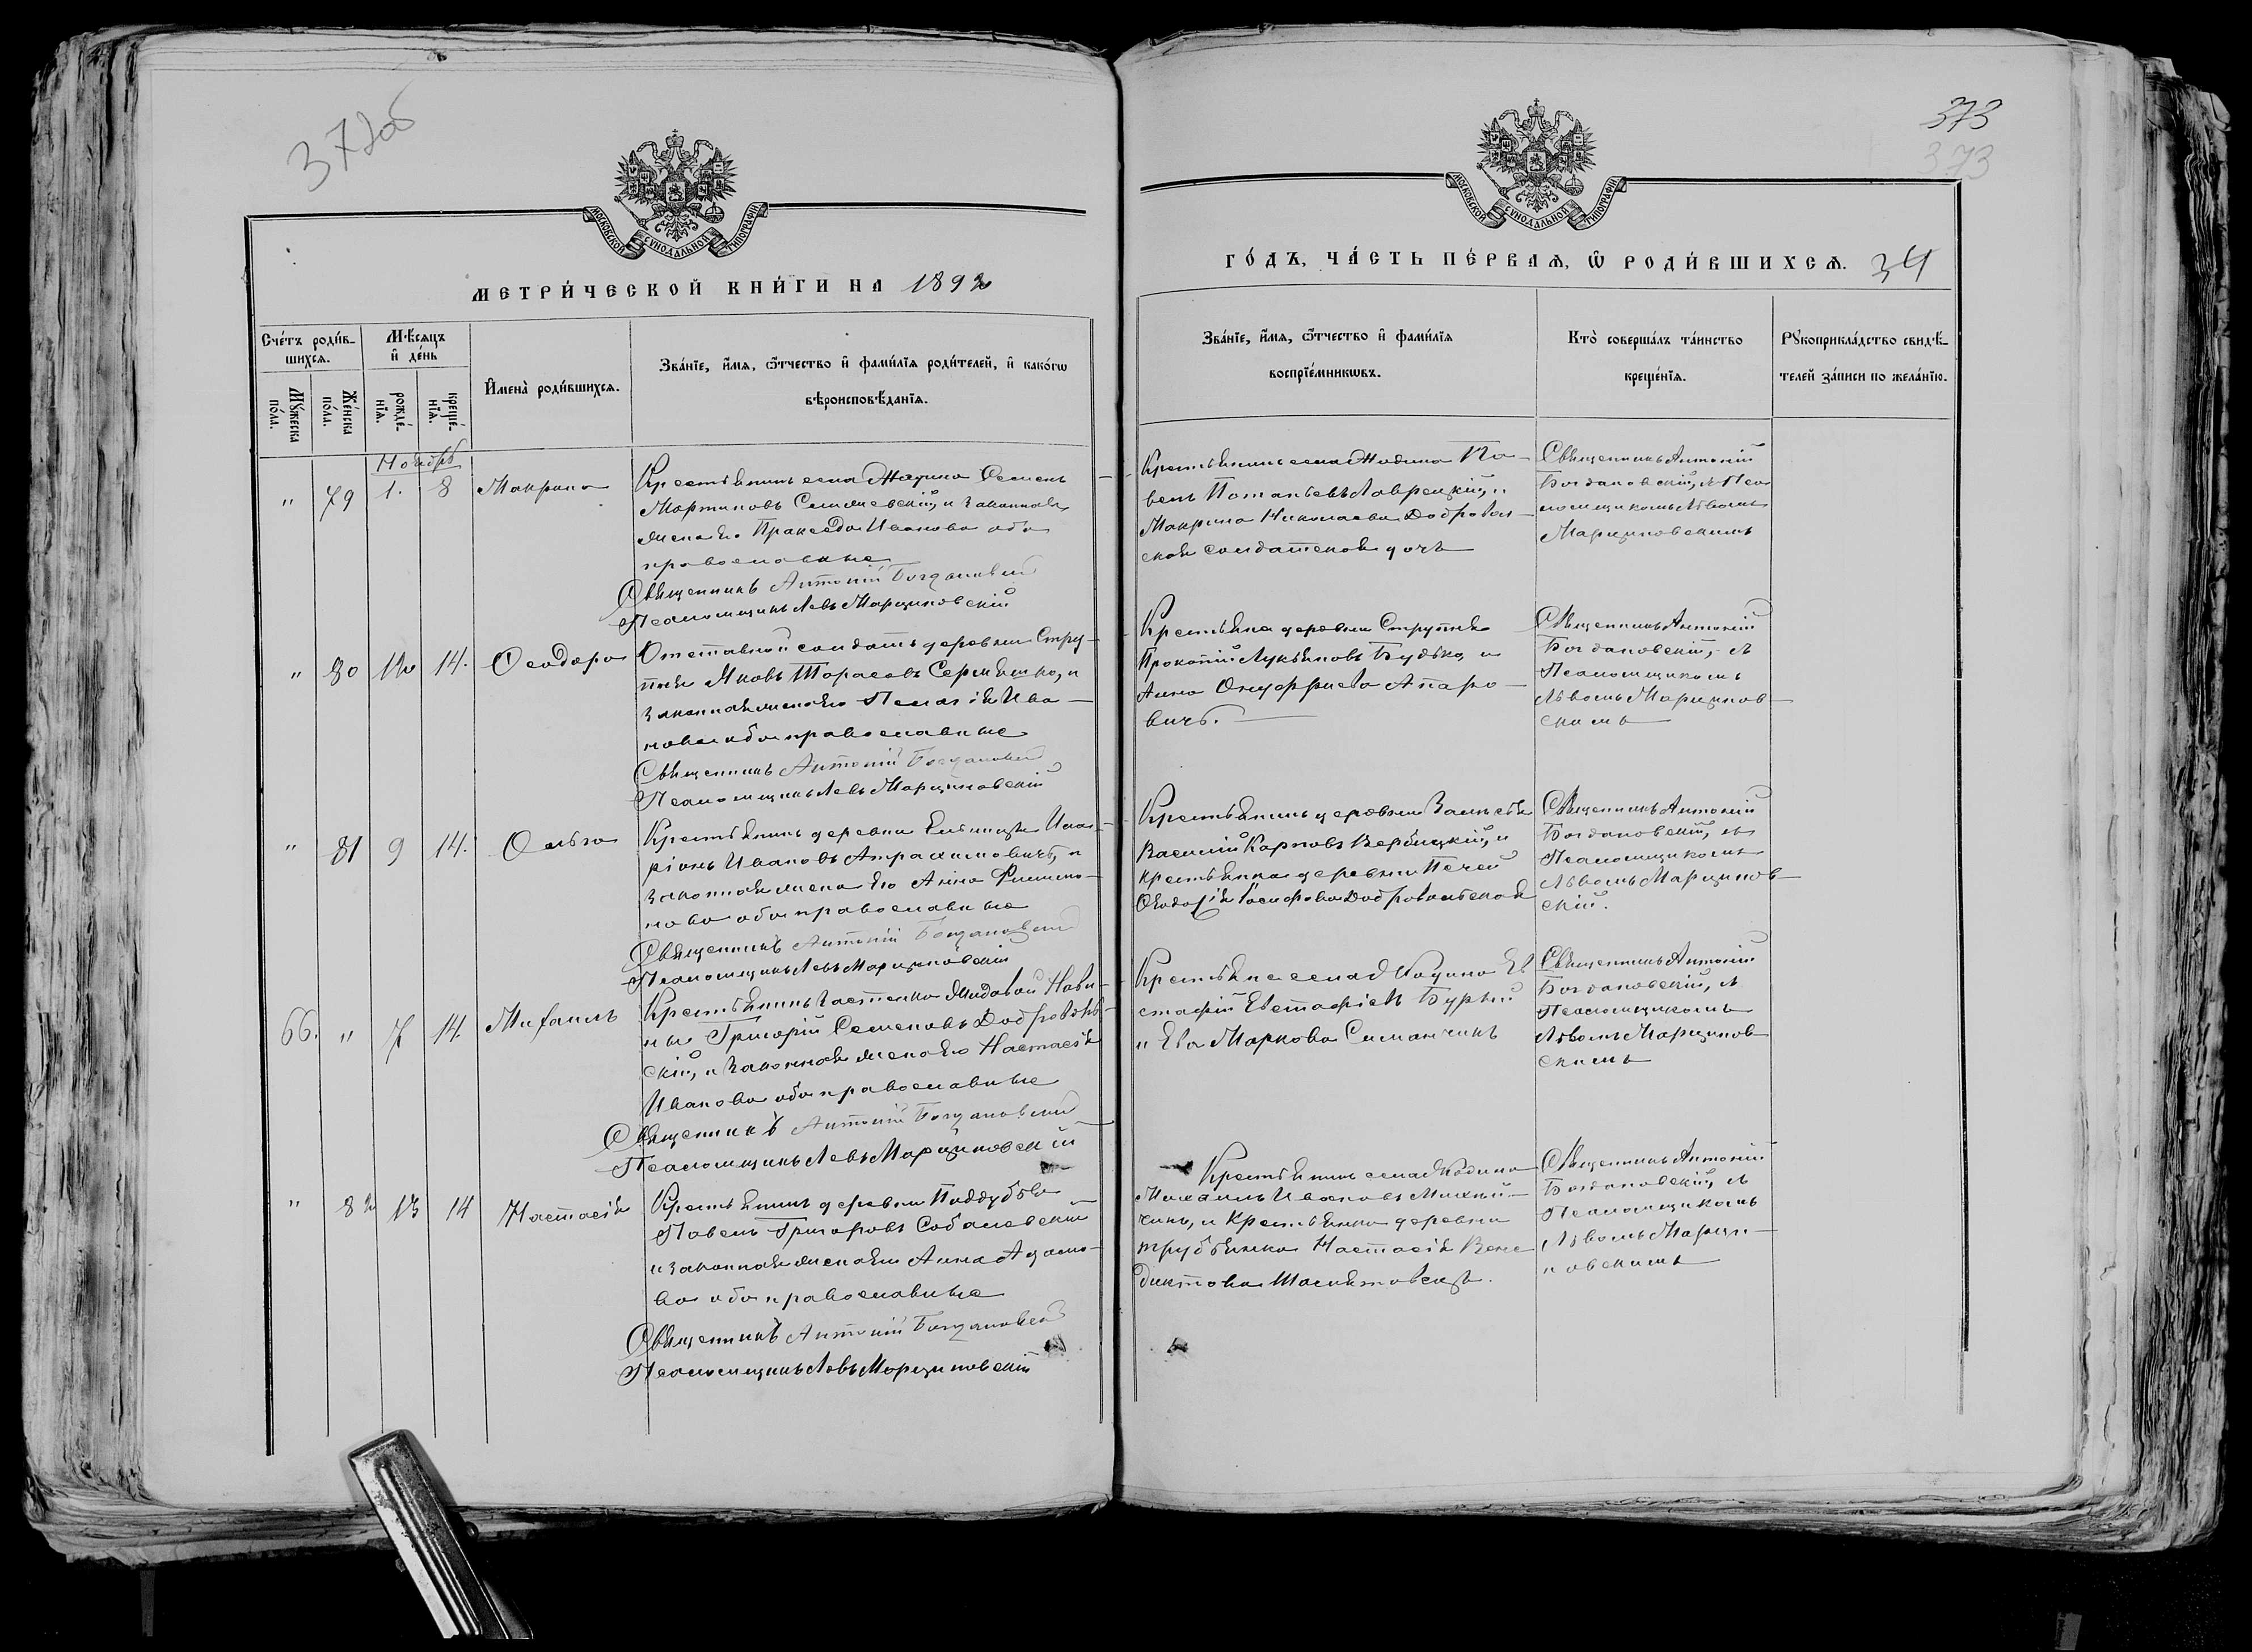 372об
МОСКОВСКОЙ СУНОДАЛЬНОЙ ТИПОГРАФІИ
МЕТРИ́ЧЕСКОЙ КНИ́ГИ НА 1892
Сче́тъ роди́в-
шихсѧ.
Мѣсѧцъ
и҆ де́нь
И҆мена̀ роди́вшихсѧ.
Зва́нїе, и҆́мѧ, ѻ҆́тчество и҆ фами́лїѧ роди́телей, и҆ како́гѡ
вѣроисповѣ́данїѧ.
Мꙋ́жеска
по́ла.
Же́нска
по́ла.
рожде́-
нїѧ.
креще́-
нїѧ.
Ноябрь
" 79 1. 8 Макрина
Крестьянинъ села Семенъ
Мартиновъ и законная
жена его Праксѣда Иванова оба
православные
Священникъ Антоній Богдановскій
Псаломщикъ Левъ Марциновскій
" 80 12 14. Ѳеодора
Отставной солдатъ деревни Стру-
пня Яковъ Тарасовъ и
законная жена его Пелагія Ива-
нова оба православные
Священникъ Антоній Богдановскій
Псаломщикъ Левъ Марциновскій
" 81 9 14. Ольга
Крестьянинъ деревни Ила-
ріонъ Ивановъ Апрахимовичъ, и
законная жена его Анна Филимо-
нова оба православные
Священникъ Антоній Богдановскій
Псаломщикъ Левъ Марциновскій
66. " 7 14. Михаилъ
Крестьянинъ Нави-
ны Григорій Семеновъ Добровольс-
кій, и законная жена его Настасія
Иванова оба православные
Священникъ Антоній Богдановскій
Псаломщикъ Левъ Марциновскій
" 82 13 14 Настасія
Крестьянинъ деревни Поддубья
Павелъ Григоровъ Соболевскій
и законная жена его Анна Адамо-
ва оба православные
Священникъ Антоній Богдановскій
Псаломщикъ Левъ Марциновскій
373
373
МОСКОВСКОЙ СУНОДАЛЬНОЙ ТИПОГРАФІИ
ГО́ДЪ, ЧА́СТЬ ПЕ́РВАѦ, Ѡ҆ РОДИ́ВШИХСѦ. 34
Зва́нїе, и҆́мѧ, ѻ҆́тчество и҆ фами́лїѧ
воспрїе́мникѡвъ.
Кто̀ соверша́лъ та́инство
креще́нїѧ.
Рꙋкоприкла́дство свидѣ́-
телей за́писи по жела́нїю.
Крестьянинъ села Па-
велъ Потапьевъ Лаврецкій, и
Макрина Николаева Доброволь-
ская солдатская дочь
Священникъ Антоній
Богдановскій, съ Пса-
ломщикомъ Львомъ
Марциновскимъ
Крестьяне деревни Струпня
Прокопій Лукьяновъ Будько, и
Анна Онуфріева Апаро-
вичъ.
Священникъ Антоній
Богдановскій, съ
Псаломщикомъ
Львомъ Марцинов-
скимъ
Крестьянинъ деревни
Василій Карповъ Вербицкій, и
крестьянка деревни Печей
Ѳеодосія Іосифова Добровольская
Священникъ Антоній
Богдановскій, съ
Псаломщикомъ
Львомъ Марцинов-
скій.
Крестьяне села Ев
стафій Евстафіевъ Бурый
и Ева Маркова Симанчикъ
Священникъ Антоній
Богдановскій, съ
Псаломщикомъ
Львомъ Марцинов
скимъ
Крестьянинъ села
Михаилъ Ивановъ Михній-
чикъ, и Крестьянка деревни
Настасія Вене
диктова
Священникъ Антоній
Богдановскій, съ
Псаломщикомъ
Львомъ Марци-
новскимъ